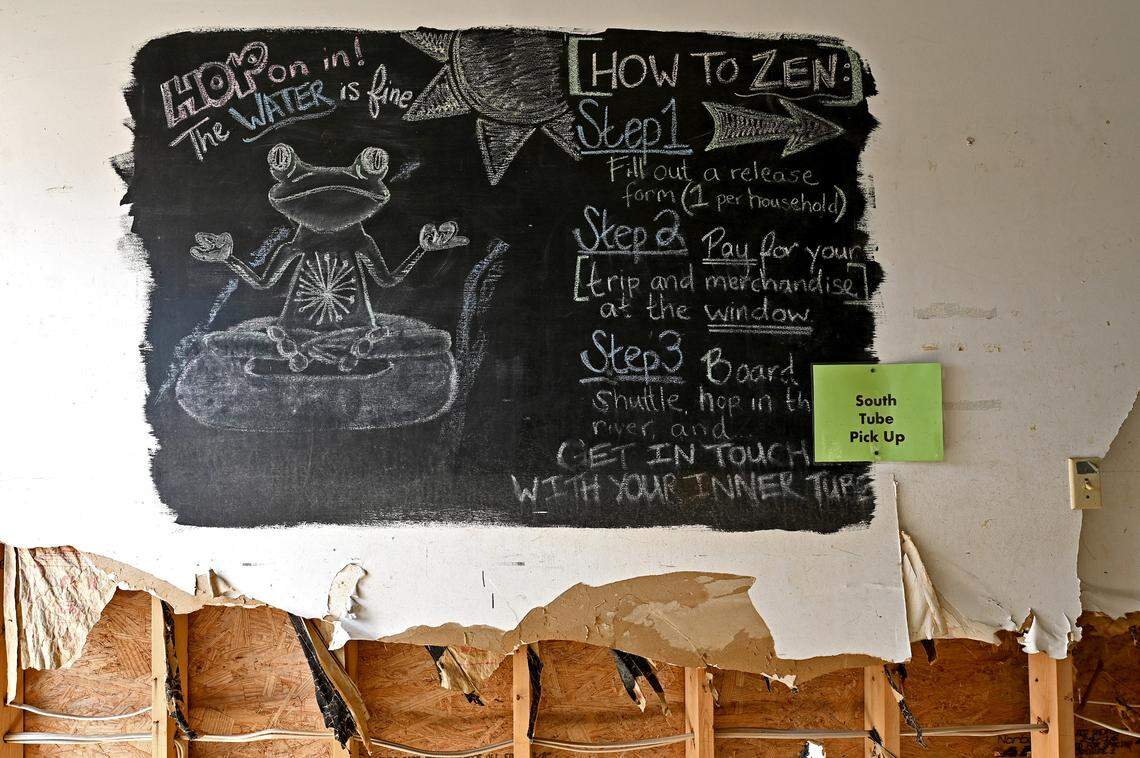 HOP on in!
The WATER is fine
[HOW TO ZEN:]
Step 1
Fill out a release
form (1 per household)
Step 2 Pay for your
[trip and merchandise]
at the window
Step 3 Board
Shuttle, hop in th
river, and...
GET IN TOUCH
WITH YOUR INNER TUBE
South
Tube
Pick Up